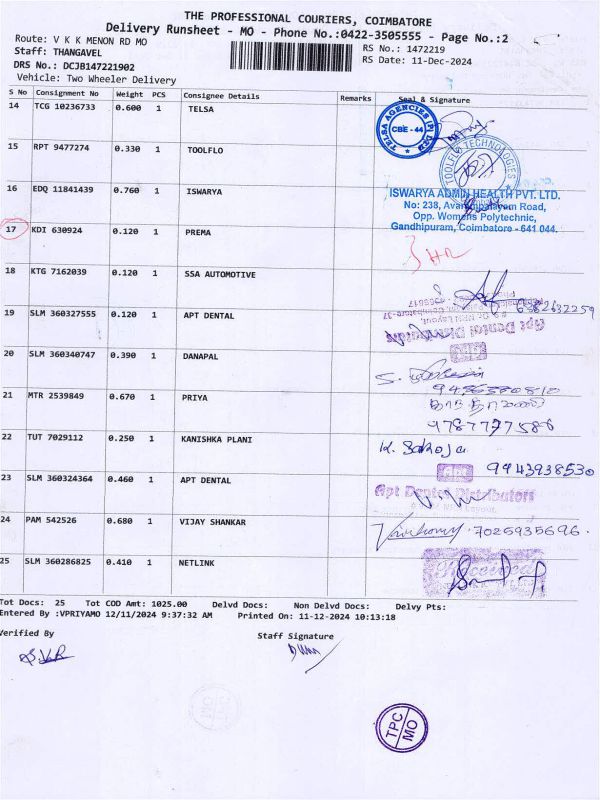 THE PROFESSIONAL COURIERS, COIMBATORE
Delivery Runsheet - MO - Phone No.:0422-3505555 - Page No.:2
Route: V K K MENON RD MO
RS No.: 1472219
Staff: THANGAVEL
RS Date: 11-Dec-2024
DRS No.: DCJB147221902
Vehicle: Two Wheeler Delivery
S No Consignment No Weight PCS Consignee Details Remarks Seal & Signature
14 TCG 10236733 0.600 1 TELSA
TELSA AGENCIES (P)
CBE - 44
15 RPT 9477274 0.330 1 TOOLFLO
TOOLFLO TECHNOLOGIES
16 EDQ 11841439 0.760 1 ISWARYA
ISWARYA ADMIN HEALTH PVT. LTD.
No: 238, Avarampalayam Road,
Opp. Womens Polytechnic,
Gandhipuram, Coimbatore - 641 044.
17 KDI 630924 0.120 1 PREMA
18 KTG 7162039 0.120 1 SSA AUTOMOTIVE
19 SLM 360327555 0.120 1 APT DENTAL
Apt Dental Distributors
20 SLM 360340747 0.390 1 DANAPAL
21 MTR 2539849 0.670 1 PRIYA
9787777586
22 TUT 7029112 0.250 1 KANISHKA PLANI
K. Saroja
9943938530
23 SLM 360324364 0.460 1 APT DENTAL
Apt Dental Distributors
24 PAM 542526 0.680 1 VIJAY SHANKAR
7025935696.
25 SLM 360286825 0.410 1 NETLINK
Tot Docs: 25 Tot COD Amt: 1025.00 Delvd Docs: Non Delvd Docs: Delvy Pts:
Entered By :VPRIYAMO 12/11/2024 9:37:32 AM Printed On: 11-12-2024 10:13:18
Verified By
Staff Signature
TPC
MO